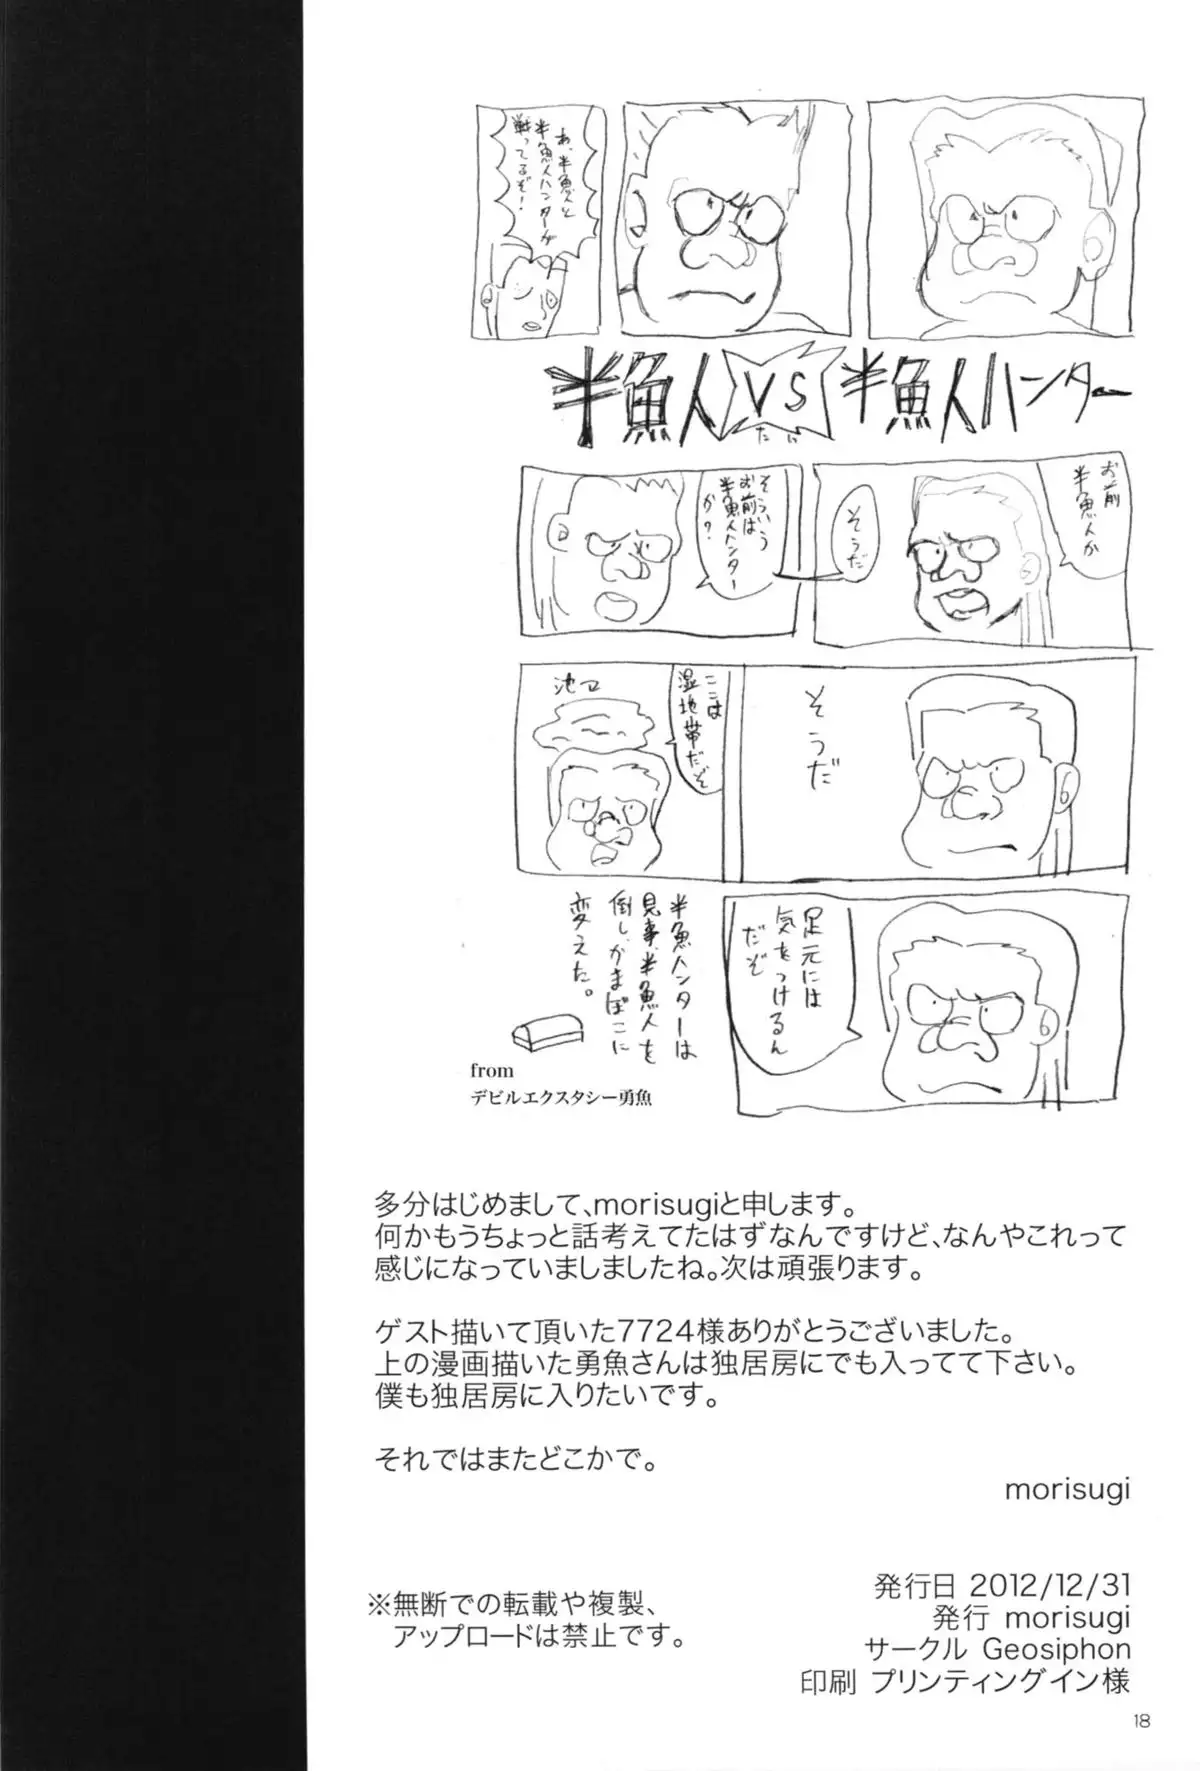 あ、半魚人と
半魚人ハンターが
戦ってるぞ!
半魚人VS半魚人ハンター
たい
お前
半魚人か
そうだ
そういう
お前は
半魚人ハンター
か?
そうだ
ここは
湿地帯だぞ
足元には
気をつけるん
だぞ
半魚ハンターは
見事、半魚人を
倒し、かまぼこに
変えた。
from
デビルエクスタシー勇魚
多分はじめまして、morisugiと申します。
何かもうちょっと話考えてたはずなんですけど、なんやこれって
感じになっていましましたね。次は頑張ります。
ゲスト描いて頂いた7724様ありがとうございました。
上の漫画描いた勇魚さんは独居房にでも入ってて下さい。
僕も独居房に入りたいです。
それではまたどこかで。
morisugi
※無断での転載や複製、
アップロードは禁止です。
発行日 2012/12/31
発行 morisugi
サークル Geosiphon
印刷 プリンティングイン様
18